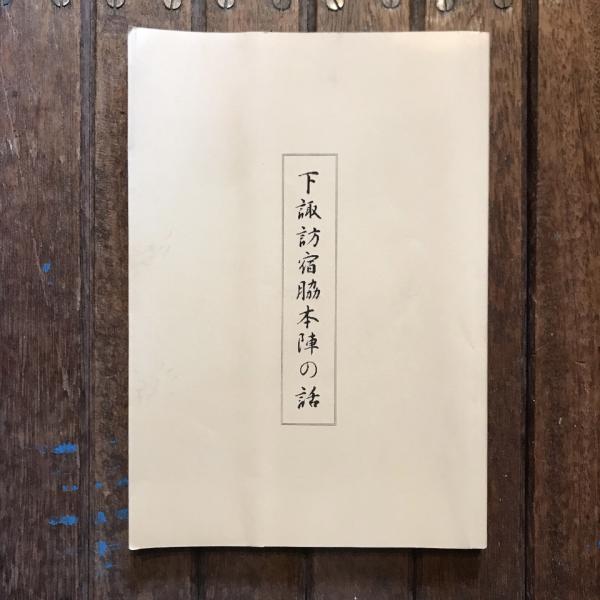 下諏訪宿脇本陣の話